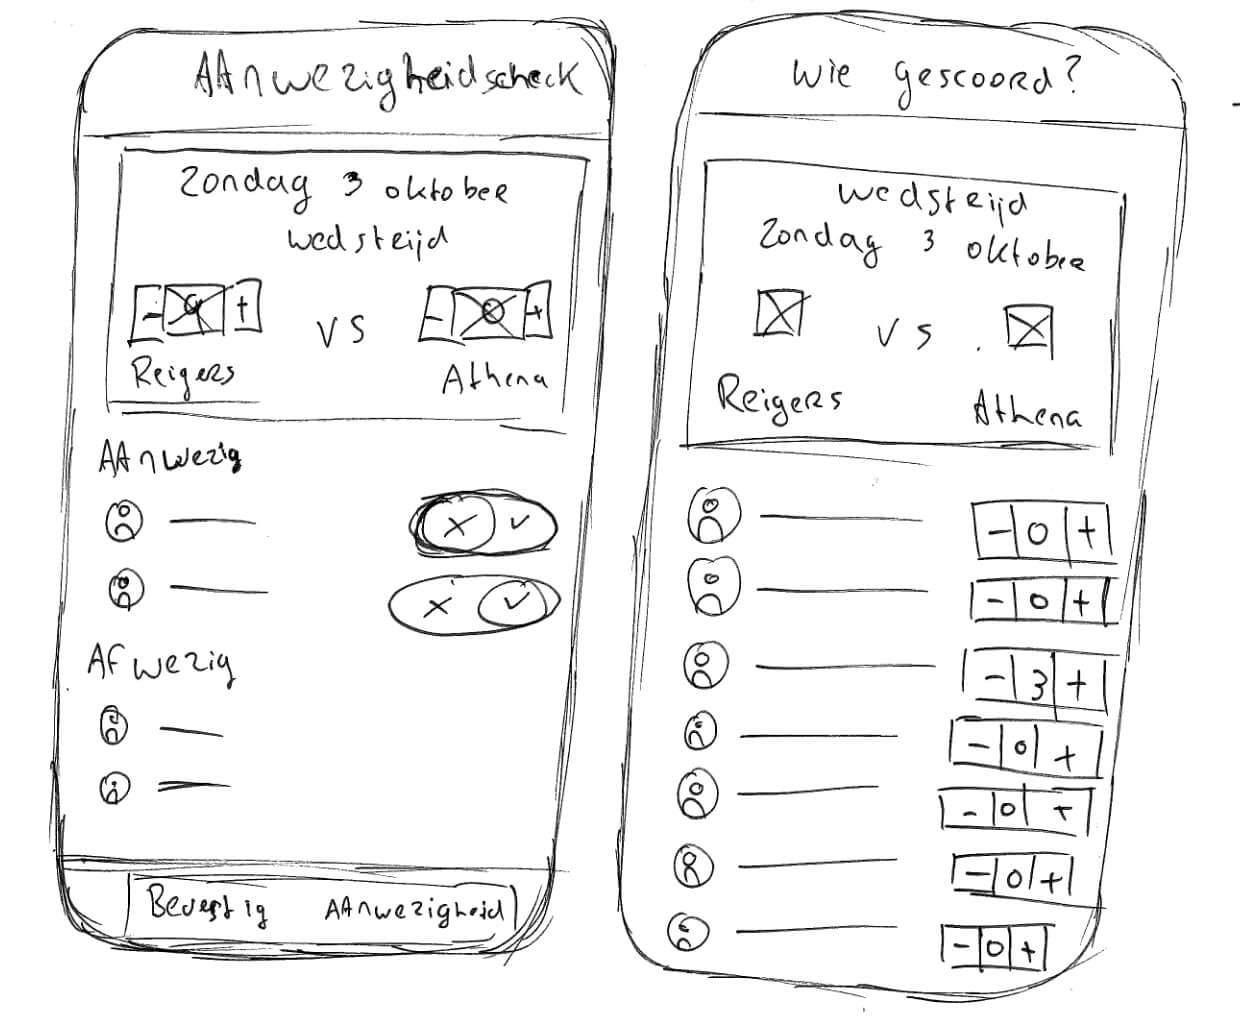 AAnwezigheidscheck
Zondag 3 oktober
wedsteijd
- +
vs
- 0 +
Reigers
Athena
AAnwezig
x ✓
x ✓
Afwezig
Bevestig AAnwezigheid
Wie gescoord?
wedsteijd
Zondag 3 oktober
vs
Reigers
Athena
- 0 +
- 0 +
- 3 +
- 0 +
- 0 +
- 0 +
- 0 +